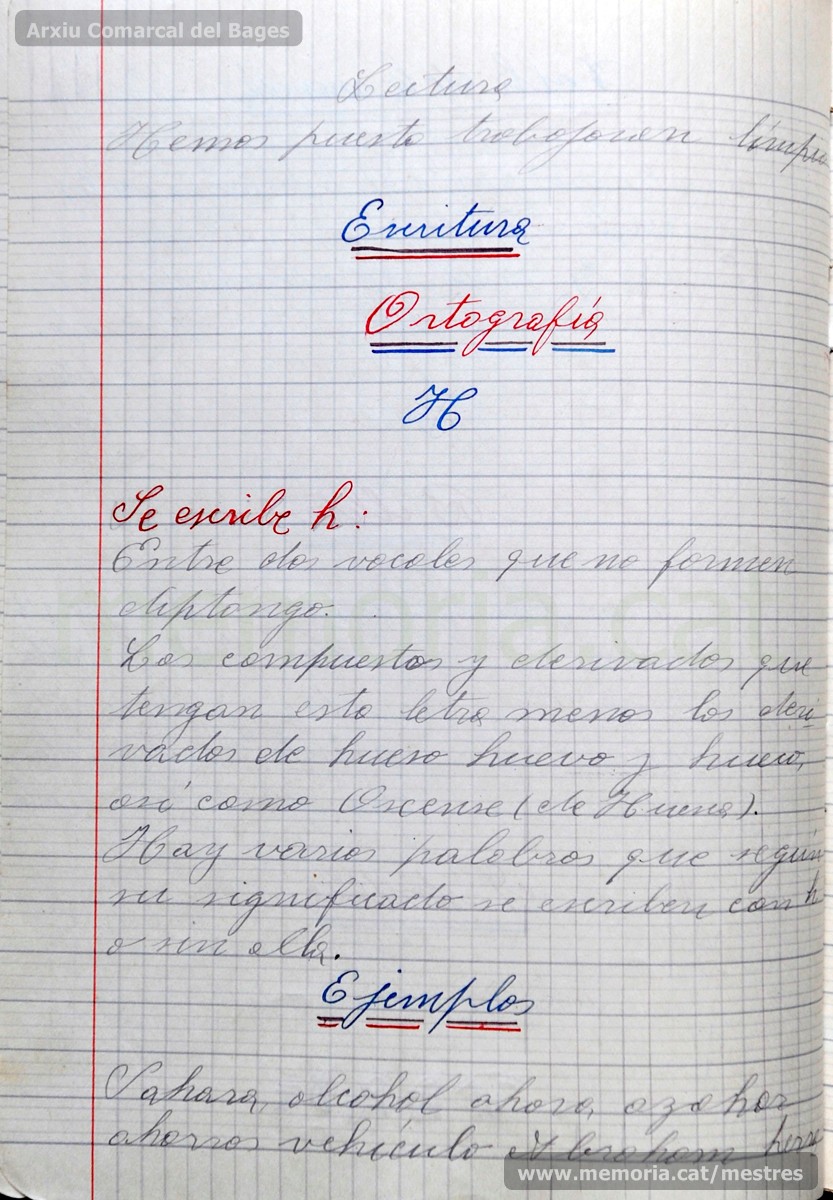 Arxiu Comarcal del Bages
Lectura
Hemos puesto
Escritura
Ortografía
H
Se escribe h:
Entre dos vocales que no formen
diptongo.
Los compuestos y derivados que
tengan esta letra menos los deri-
vados de hueso huevo y hueco,
así como Oscense (de Huesca).
Hay varias palabras que según
su significado se escriben con h
o sin ella.
Ejemplos
Sahara, alcohol ahora, azahar
ahorros vehículo Abraham
www.memoria.cat/mestres